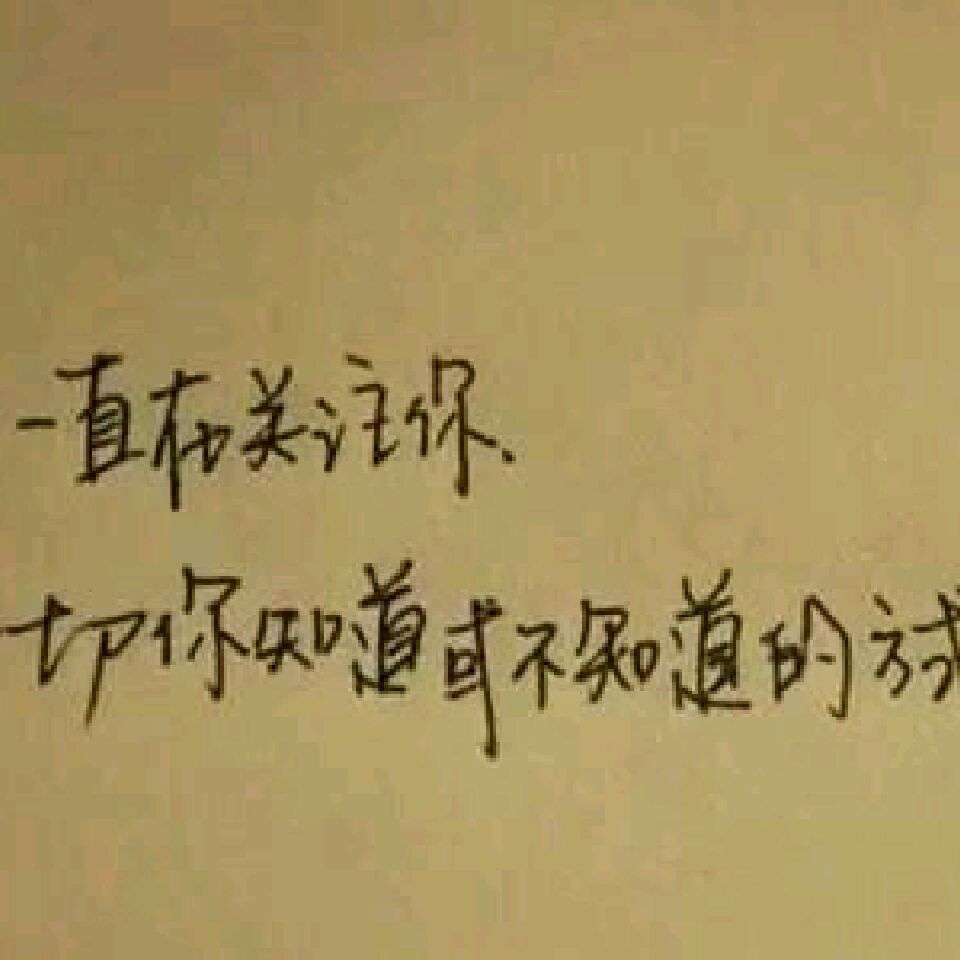 一直在关注你、
切你知道或不知道的方式